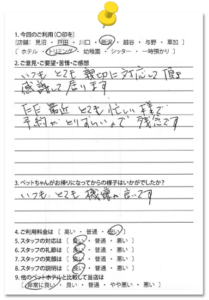 1.今回のご利用(○印を)
[店舗: 見沼 ・ 戸田 ・ 川口 ・ ・ 越谷 ・ 与野 ・ 草加 ]
[ ホテル ・ トリミング ・ 幼稚園 ・ シッター ・ 一時預かり ]
2.ご意見・ご要望・苦情・ご感想
いつもとても親切に対応して頂
感謝して居ります
ただ最近とても忙しい様で
予約がとりずらいので残念です
3.ペットちゃんがお帰りになってからの様子はいかがでしたか?
いつもとても機嫌が良いです
4.ご利用料金は [ 高い ・ 普通 ・ 安い ]
5.スタッフの対応は [ 良い ・ 普通 ・ 悪い ]
6.スタッフの礼節は [ 良い ・ 普通 ・ 悪い ]
7.スタッフの笑顔は [ 良い ・ 普通 ・ 悪い ]
8.スタッフの説明は [ 良い ・ 普通 ・ 悪い ]
9.他のペットホテルと比較して当店は
[ 非常に良い ・ 良い ・ 普通 ・ やや悪い ・ 悪い ]